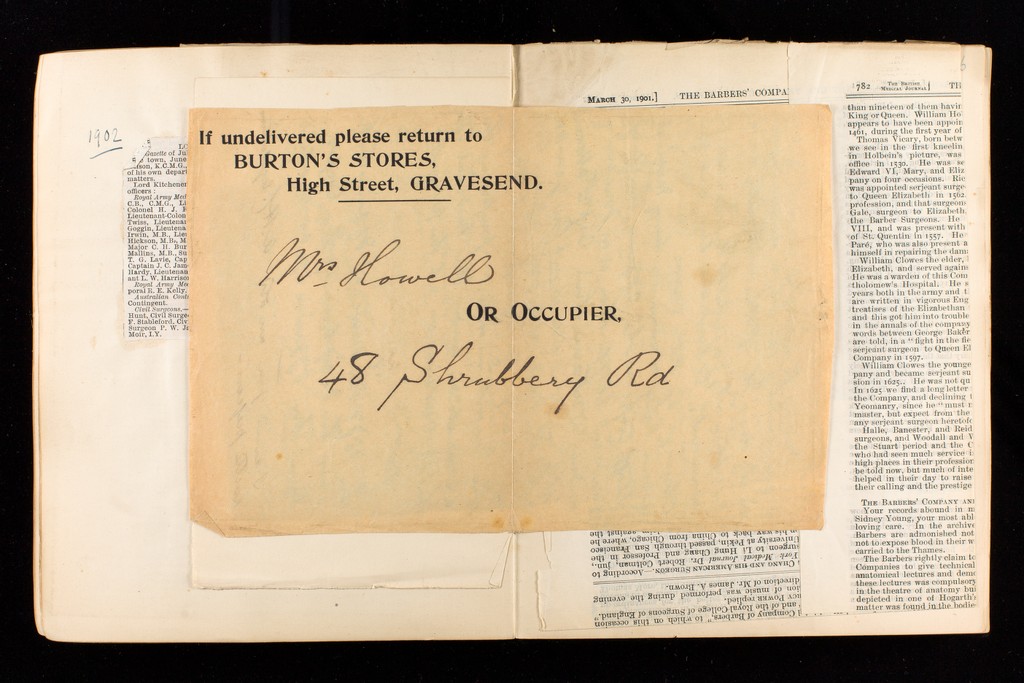 1902
Gazette of
town, June
of his own depar
matters.
Lord Kitchener
officers:
Royal Army Med
C.B., C.M.G.,
Colonel H. J.
Lieutenant-Colon
Twiss, Lieutenan
Goggin, Lieutena
Irwin, M.B.,
Hickson, M.B.,
Major C. H. Bur
Mallins, M.B.,
T. G. Lavie, Cap
Captain J. C. Jam
Hardy, Lieutenan
ant L. W. Harriso
Royal Army Me
poral R. E. Kelly.
Australian Cont
Contingent.
Civil Surgeons.—
Hunt, Civil Surge
F. Stableford, Civ
Surgeon P. W.
Moir, I.Y.
If undelivered please return to
BURTON'S STORES,
High Street, GRAVESEND.
Mrs Howell
OR OCCUPIER,
48 Shrubbery Rd
MARCH 30, 1901.] THE BARBERS' COMPA
782 THE BRITISH MEDICAL JOURNAL] TH
than nineteen of them havin
King or Queen. William Ho
appears to have been appoin
1461, during the first year of
Thomas Vicary, born betw
we see in the first kneelin
in Holbein's picture, was
office in 1530. He was se
Edward VI, Mary, and Eliz
pany on four occasions. Ric
was appointed serjeant surge
to Queen Elizabeth in 1562.
profession, and that surgeon
Gale, surgeon to Elizabeth,
the Barber Surgeons. He
VIII, and was present with
of St. Quentin in 1557. He
Paré, who was also present a
himself in repairing the dam
William Clowes the elder,
Elizabeth, and served again
He was a warden of this Com
tholomew's Hospital. He s
years both in the army and t
are written in vigorous Eng
treatises of the Elizabethan
and this got him into trouble
in the annals of the company
words between George Baker
are told, in a "fight in the fie
serjeant surgeon to Queen El
Company in 1597.
William Clowes the younge
pany and became serjeant su
sion in 1625. He was not qu
In 1625 we find a long letter
the Company, and declining t
Yeomanry, since he "must r
master, but expect from the
any serjeant surgeon heretofo
Halle, Banester, and Reid
surgeons, and Woodall and V
the Stuart period and the C
who had seen much service i
high places in their profession
be told now, but much of inte
helped in their day to raise
their calling and the prestige
THE BARBERS' COMPANY AN
Your records abound in m
Sidney Young, your most abl
loving care. In the archive
Barbers are admonished not
not to expose blood in their w
carried to the Thames.
The Barbers rightly claim to
Companies to give technical
anatomical lectures and dem
these lectures was compulsory
in the theatre of anatomy bu
depicted in one of Hogarth's
matter was found in the bodie
Company of Barbers," to which on this occasion
and of the Royal College of Surgeons of England.
POWER replied.
of music was performed during the evening
direction of Mr. James A. Brown.
CHANG AND HIS AMERICAN SURGEON.—According to
York Medical Journal Dr. Robert Coltman, jun.,
surgeon to Li Hung Chang and Professor in the
University at Pekin, passed through San Francisco
his way back to China from Chicago, where he
against the